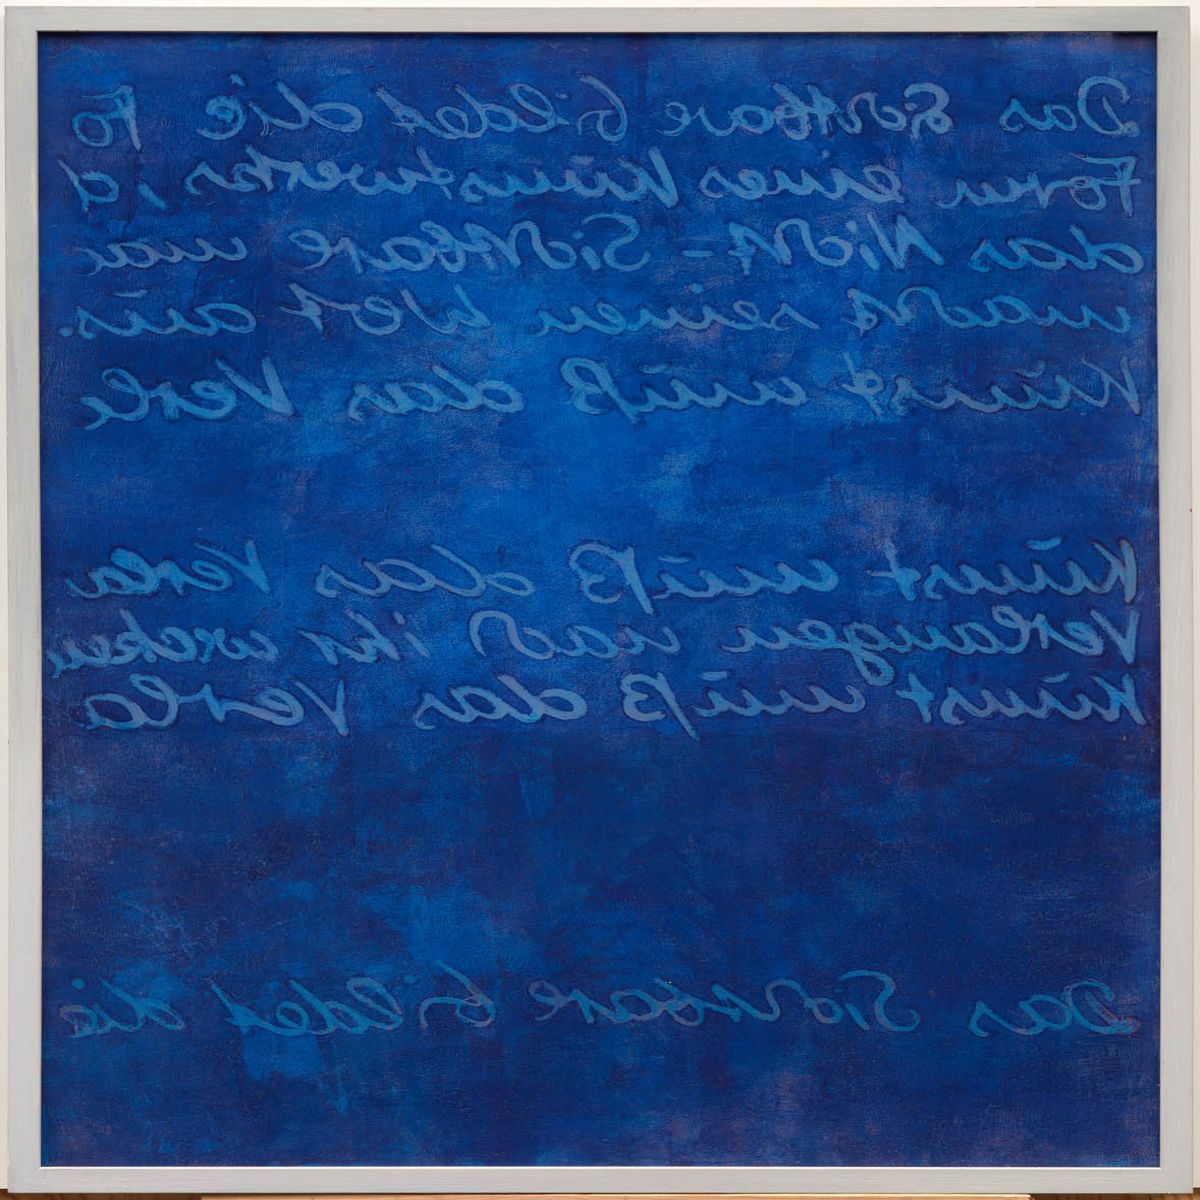 Das Sichtbare bildet die Fo
Form eines Kunstwerks, d
das Nicht-Sichtbare mac
macht seinen Wert aus.
Kunst muß das Verl
Kunst muß das Verla
Verlangen nach ihr wecken
Kunst muß das Verla
Das Sichtbare bildet die